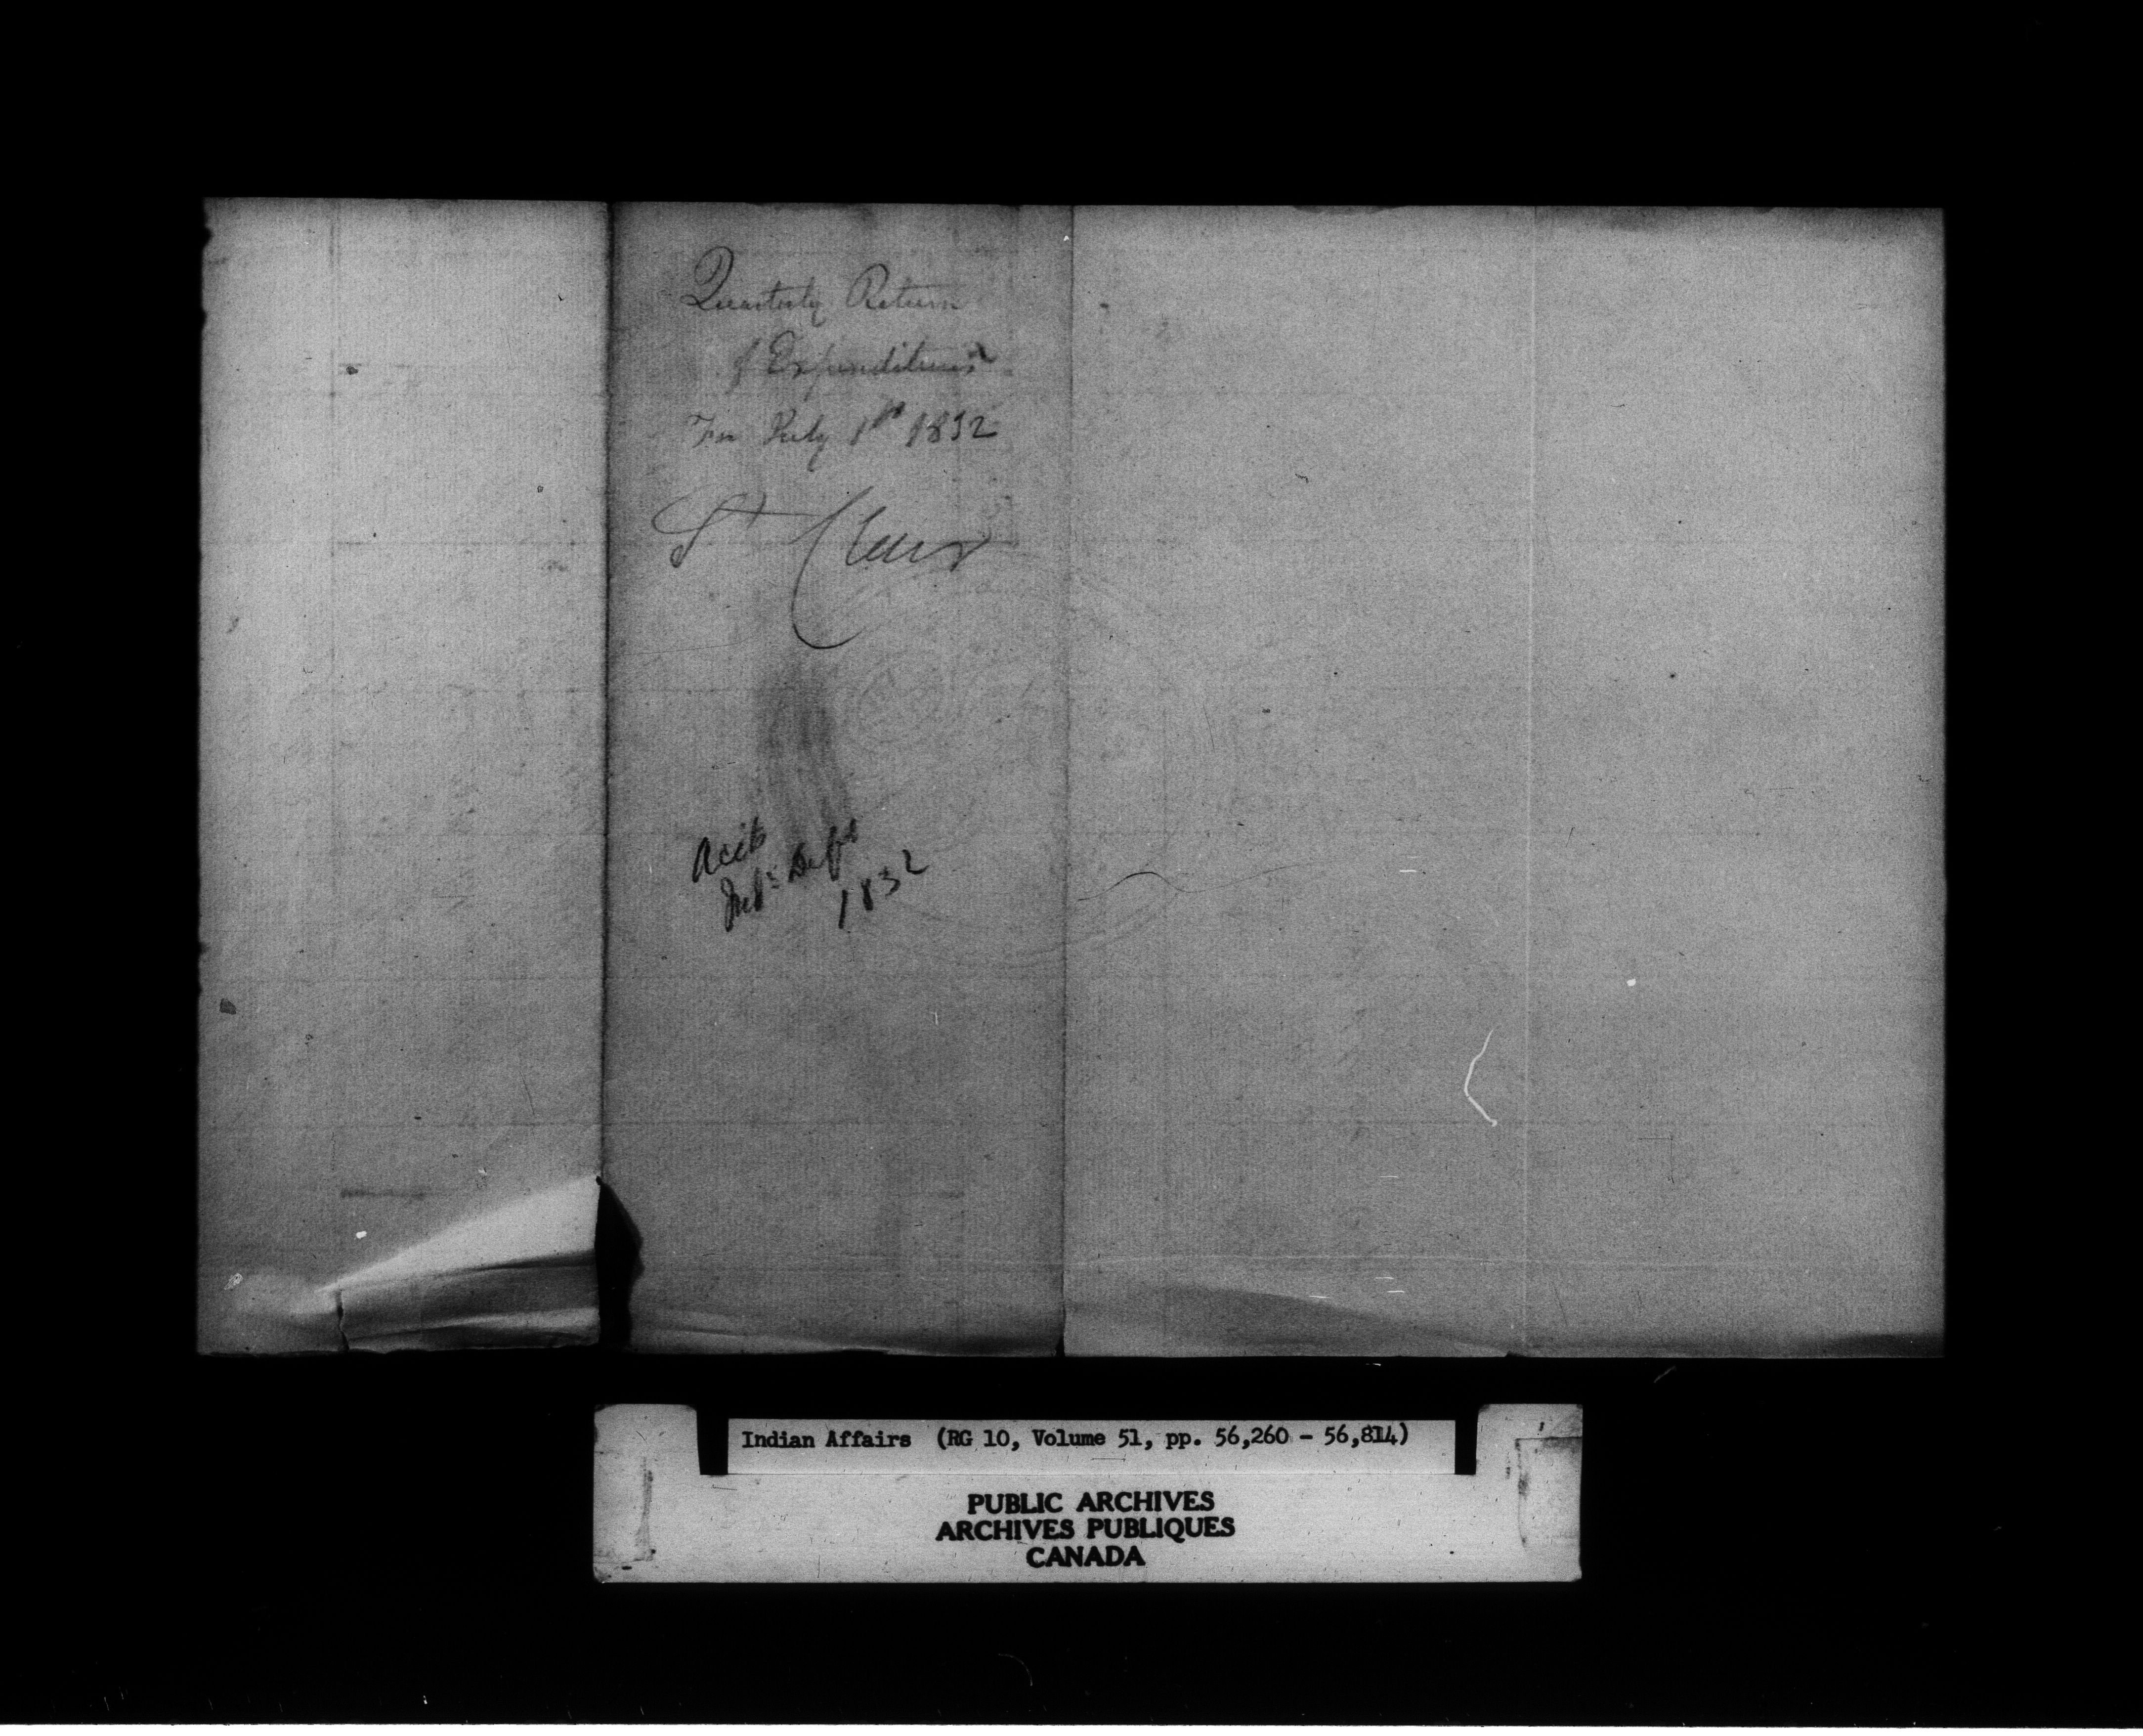 Quarterly Return
of Expenditures
For July 1st 1832
St Clair
Accts
Indn Dept
1832
Indian Affairs (RG 10, Volume 51, pp. 56,260 - 56,814)
PUBLIC ARCHIVES
ARCHIVES PUBLIQUES
CANADA